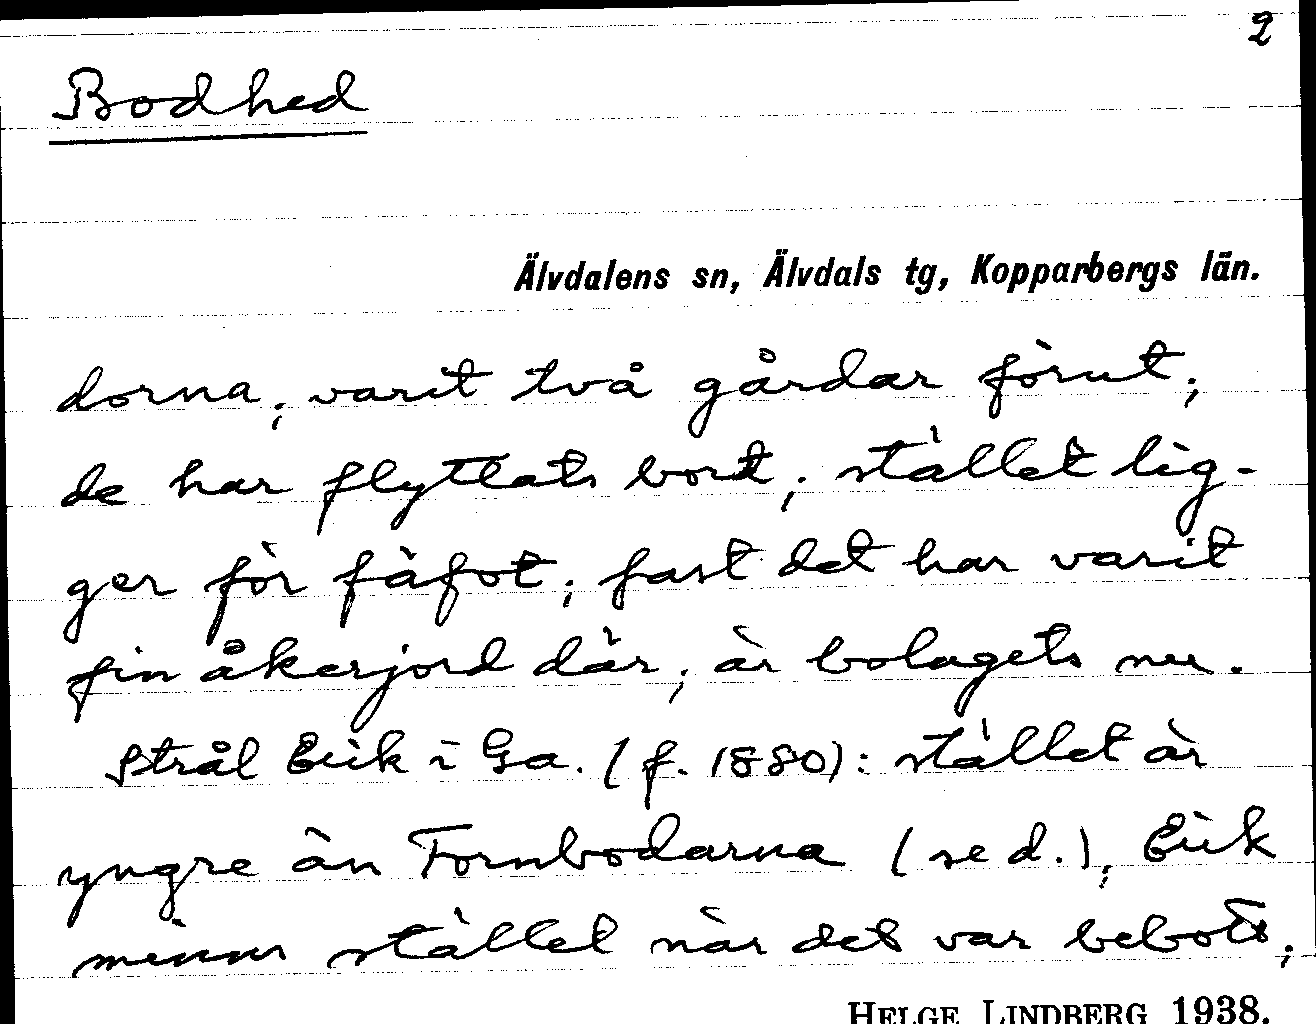 2
Bodhed
Älvdalens sn, Älvdals tg, Kopparbergs län.
dorna; varit två gårdar förut;
de har flyttats bort; stället lig-
ger för fäfot; fast det har varit
fin åkerjord där; är bolagets nu.
Strål Erik i Ga. (f. 1880): stället är
yngre än Fornbodarna (se d.); Erik
minns stället när det var bebott;
HELGE LINDBERG 1938.